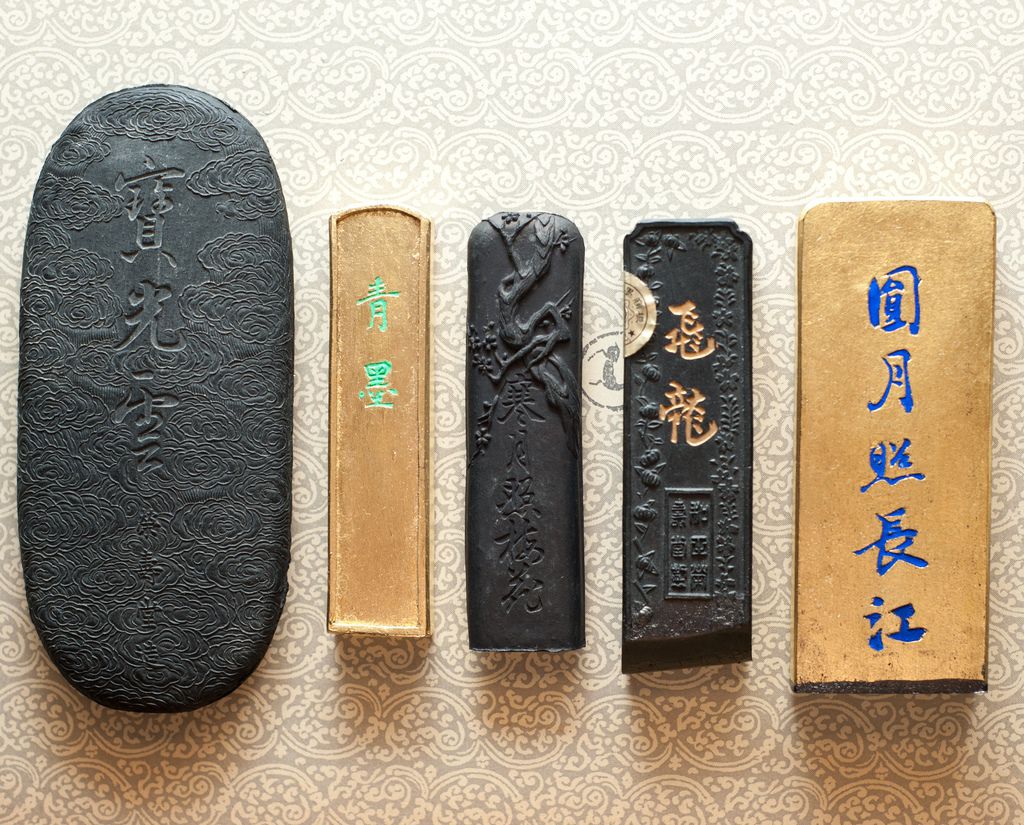 寶光雲
青墨
寒月照梅花
飛龍
圓月照長江